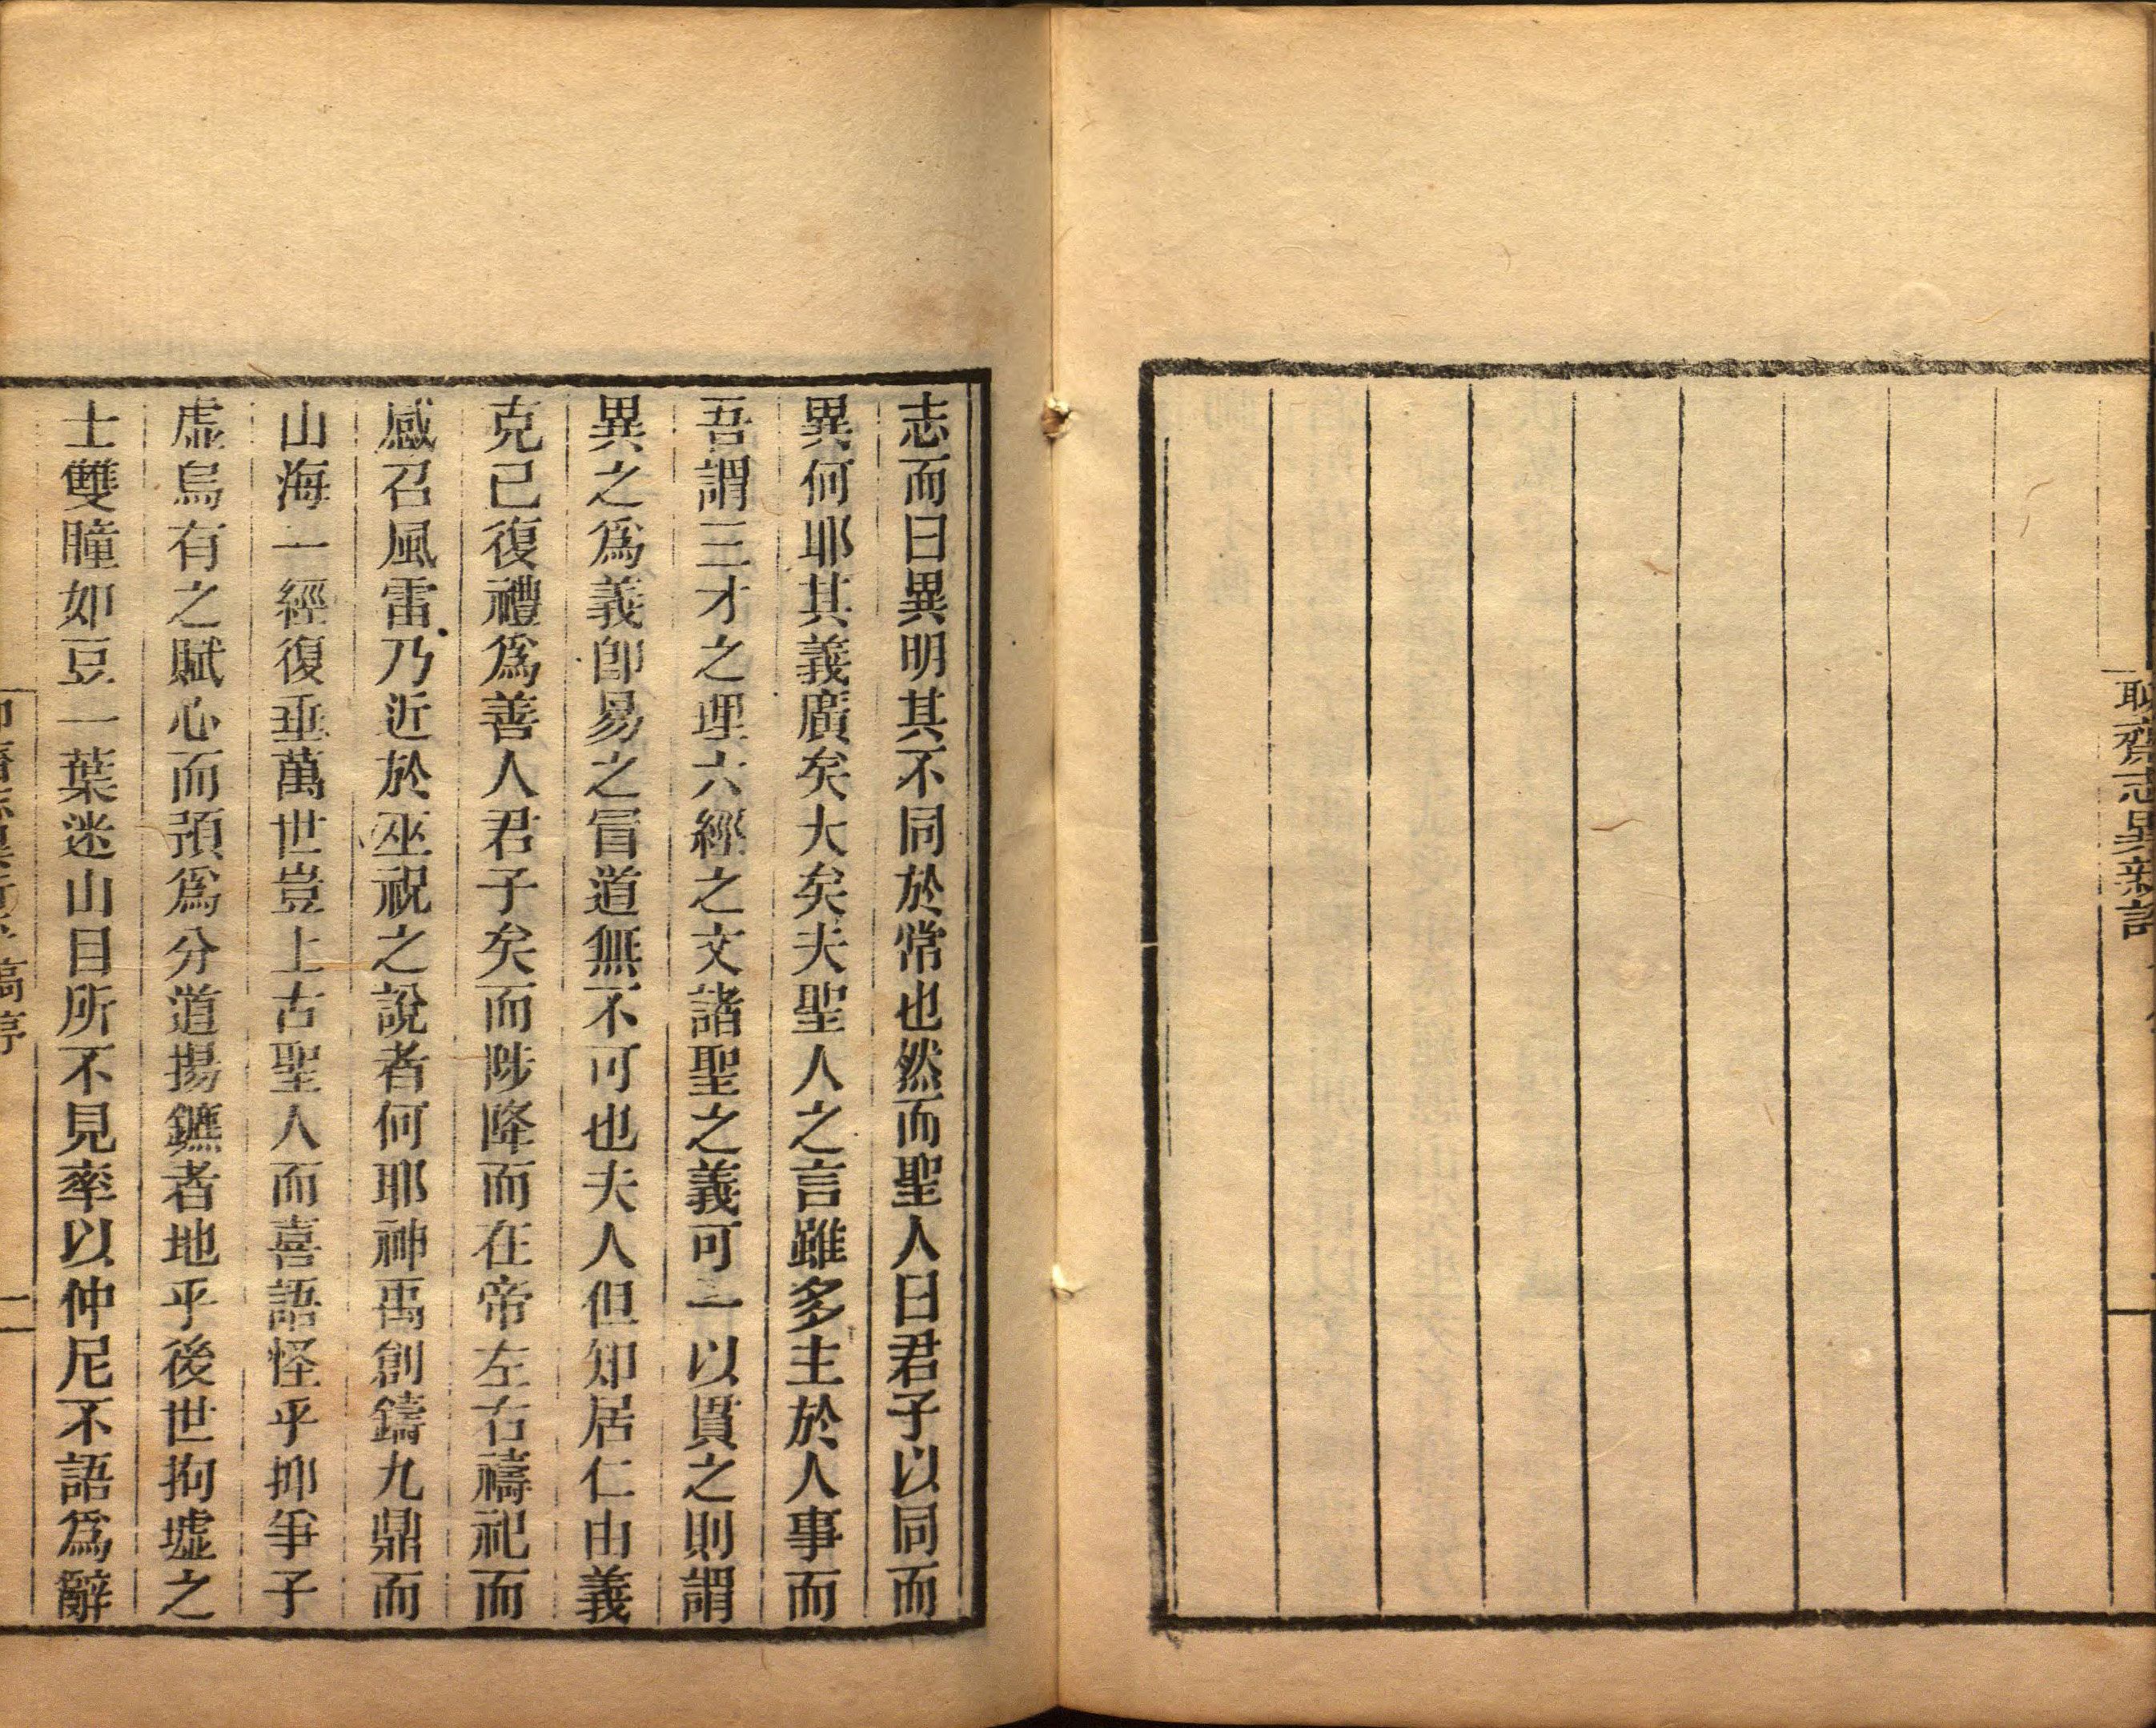 聊齋志異新評
志而曰異明其不同於常也然而聖人曰君子以同而
異何耶其義廣矣大矣夫聖人之言雖多主於人事而
吾謂三才之理六經之文諸聖之義可一以貫之則謂
異之爲義卽易之冒道無不可也夫人但知居仁由義
克己復禮爲善人君子矣而陟降而在帝左右禱祀而
感召風雷乃近於巫祝之說者何耶神禹創鑄九鼎而
山海一經復垂萬世豈上古聖人而喜語怪乎抑爭子
虛烏有之賦心而預爲分道揚鑣者地乎後世拘墟之
士雙瞳如豆一葉迷山目所不見率以仲尼不語爲辭
高序
一